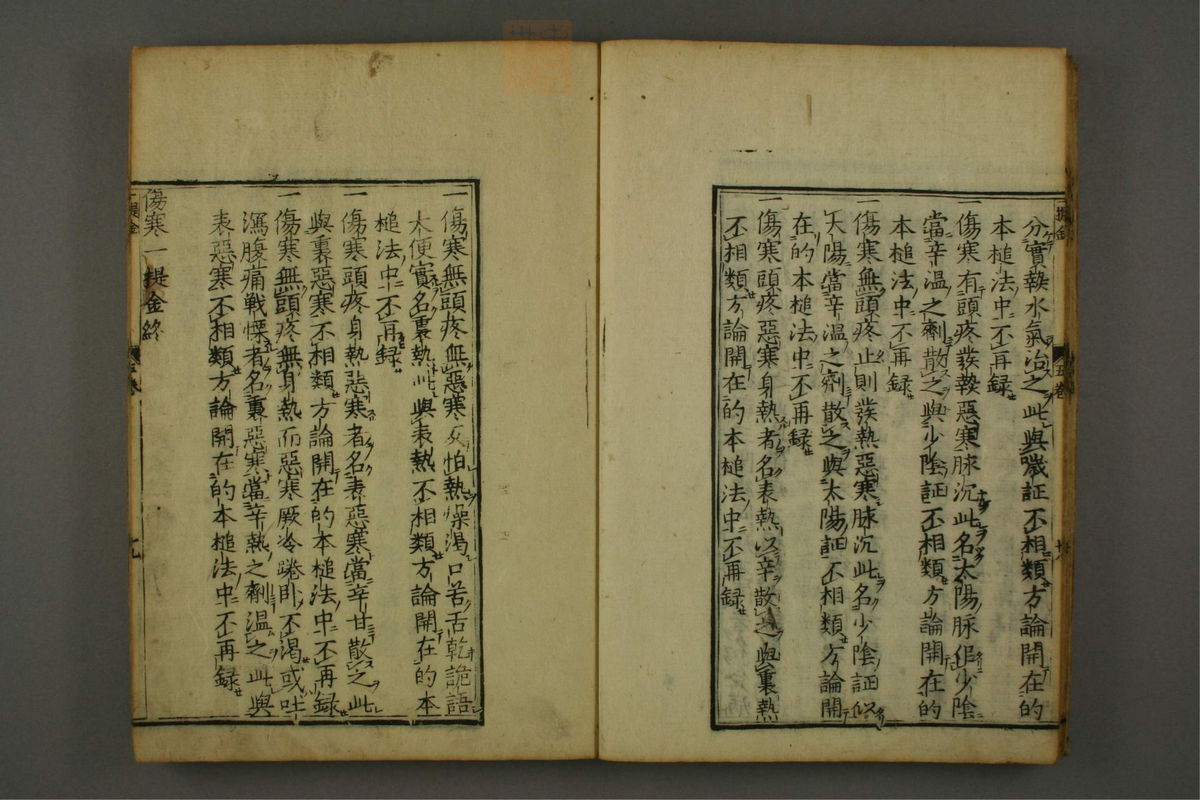 分實熱水氣治之此與嘔証不相類方論開在的
本槌法中不再録
一傷寒有頭疼發熱惡寒脉沉此名太陽脉似少陰
當辛温之劑散之與少陰証不相類方論開在的
本槌法中不再録
一傷寒無頭疼止則發熱惡寒脉沉此名少陰証似
太陽當辛温之劑散之與太陽証不相類方論開
在的本槌法中不再録
一傷寒頭疼惡寒身熱者名表熱以辛散之與裏熱
不相類方論開在的本槌法中不再録
一傷寒無頭疼無惡寒反怕熱燥渇口苦舌乾詭語
大便實名裏熱此與表熱不相類方論開在的本
槌法中不再録
一傷寒頭疼身熱惡寒者名表惡寒當辛甘散之此
與裏惡寒不相類方論開在的本槌法中不再録
一傷寒無頭疼無身熱而惡寒厥冷踡卧不渇或吐
瀉腹痛戦慄者名裏惡寒當辛熱之劑温之此與
表惡寒不相類方論開在的本槌法中不再録
傷寒一提金終